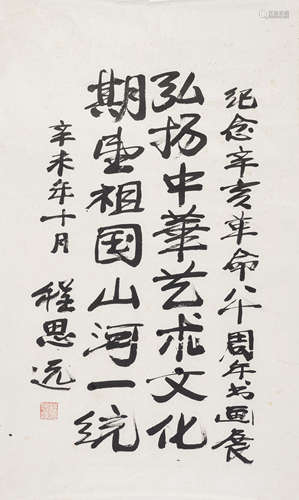 纪念辛亥革命八十周年书画展
弘扬中華艺术文化
期望祖国山河一统
辛未年十月
程思远